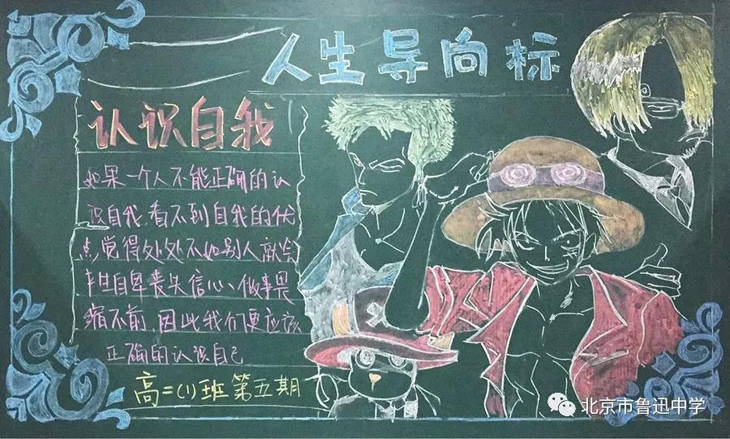 人生导向标
认识自我
如果一个人不能正确的认
识自我,看不到自我的优
点,觉得处处不如别人,就会
产生自卑,丧失信心、做事畏
缩不前,因此我们更应该
正确的认识自己
高二(1)班第五期
北京市鲁迅中学